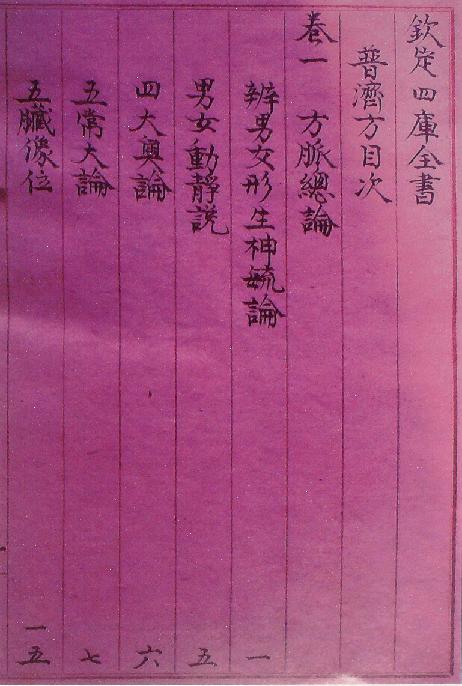 欽定四庫全書
普濟方目次
卷一 方脈總論
辨男女形生神毓論 一
男女動靜說 五
四大奧論 六
五常大論 七
五臟像位 一五